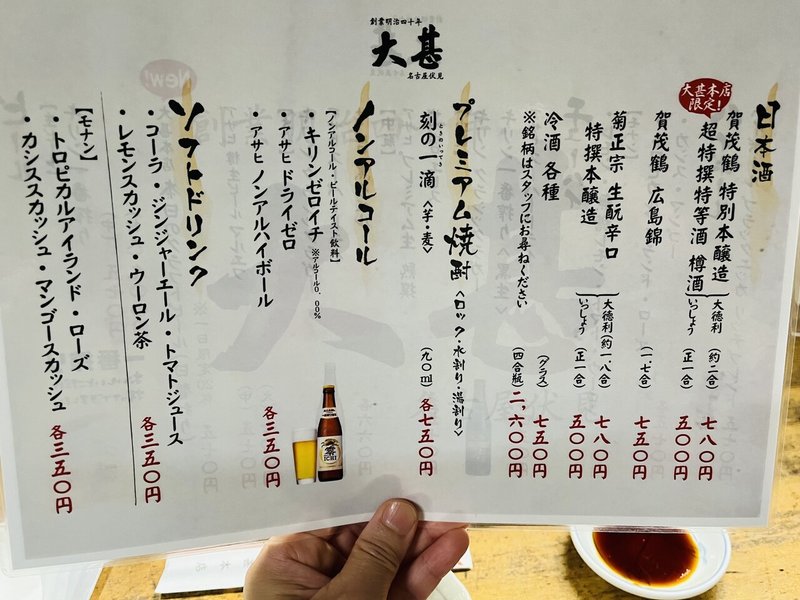 創業明治四十年
大甚
名古屋伏見
日本酒
大甚本店
限定!
賀茂鶴 特別本醸造
超特撰特等酒 樽酒
大徳利 (約二合) 七八〇円
いっしょう (正一合) 五〇〇円
賀茂鶴 広島錦 (一.七合) 七五〇円
菊正宗 生酛辛口
特撰本醸造
大徳利 (約一.八合) 七八〇円
いっしょう (正一合) 五〇〇円
冷酒 各種 (グラス) 七五〇円
※銘柄はスタッフにお尋ねください (四合瓶) 二,六〇〇円
プレミアム焼酎 〈ロック・水割り・湯割り〉
ときのいってき
刻の一滴 〈芋・麦〉 (九〇ml) 各七五〇円
ノンアルコール
【ノンアルコール・ビールテイスト飲料】
・キリンゼロイチ ※アルコール0.00%
・アサヒ ドライゼロ
・アサヒ ノンアルハイボール 各三五〇円
零
ICHI
ソフトドリンク
・コーラ・ジンジャーエール・トマトジュース
・レモンスカッシュ・ウーロン茶 各三五〇円
【モナン】
・トロピカルアイランド・ローズ
・カシススカッシュ・マンゴースカッシュ 各三五〇円